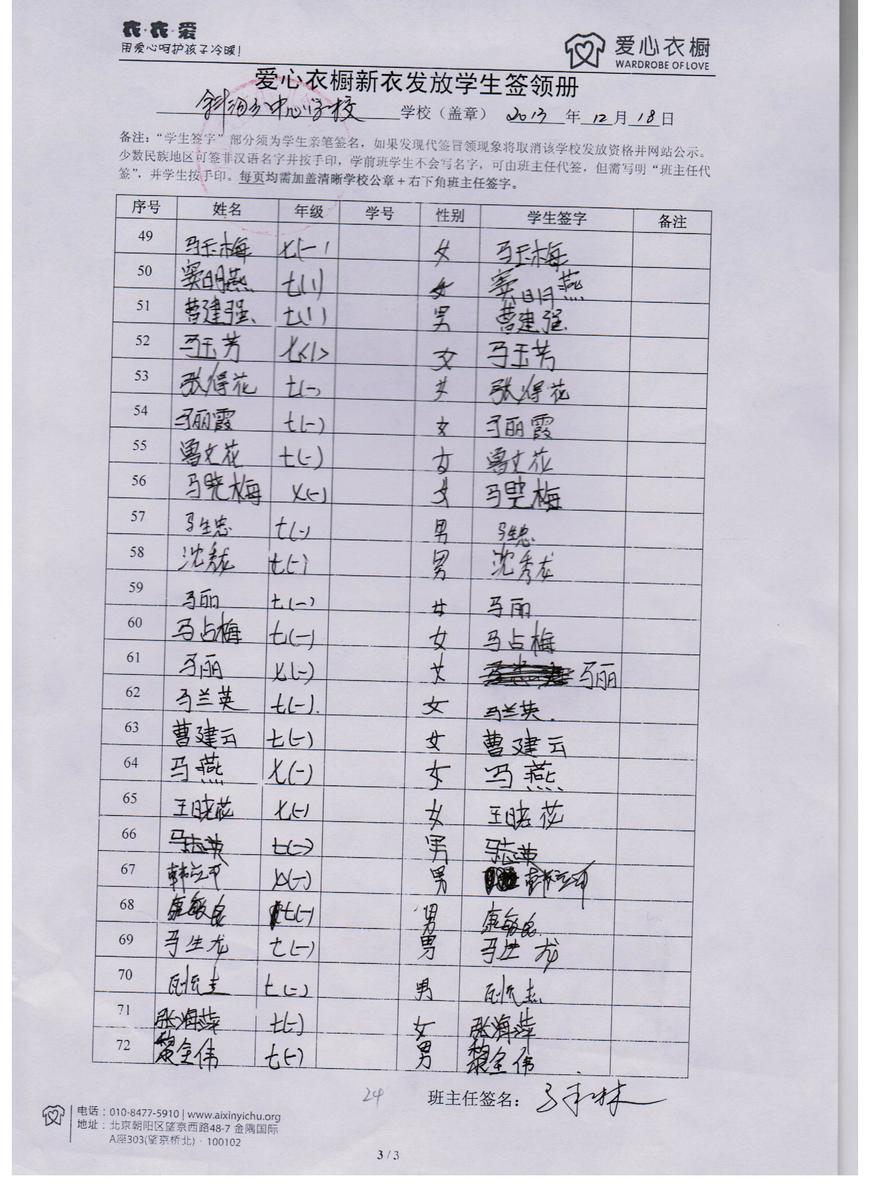 衣·衣·爱
用爱心呵护孩子冷暖!
爱心衣橱
WARDROBE OF LOVE
爱心衣橱新衣发放学生签领册
中心学校 学校（盖章） 2013 年 12 月 18 日
备注：“学生签字”部分须为学生亲笔签名，如果发现代签冒领现象将取消该学校发放资格并网站公示。
少数民族地区可签非汉语名字并按手印，学前班学生不会写名字，可由班主任代签，但需写明“班主任代
签”，并学生按手印。每页均需加盖清晰学校公章+右下角班主任签字。
序号 姓名 年级 学号 性别 学生签字 备注
49 马玉梅 七(一) 女 马玉梅
50 窦明燕 七(1) 女 窦明燕
51 曹建强 七(1) 男 曹建强
52 马玉芳 七<1> 女 马玉芳
53 张得花 七(一) 女 张得花
54 马丽霞 七(一) 女 马丽霞
55 曹文花 七(一) 女 曹文花
56 马晓梅 七(一) 女 马晓梅
57 马生忠 七(一) 男 马生忠
58 沈秀龙 七(一) 男 沈秀龙
59 马丽 七(一) 女 马丽
60 马占梅 七(一) 女 马占梅
61 马丽 七(一) 女 马丽
62 马兰英 七(一). 女 马兰英.
63 曹建云 七(一) 女 曹建云
64 马燕 七(一) 女 马燕
65 王晓花 七(一) 女 王晓花
66 马志英 七(一) 男 马志英
67 七(一) 男
68 康敏良 七(一) 男 康敏良
69 马生龙 七(一) 男 马生龙
70 七(一) 男
71 张海萍 七(一) 女 张海萍
72 黎金伟 七(一) 男 黎金伟
24 班主任签名：
电话：010-8477-5910 | www.aixinyichu.org
地址：北京朝阳区望京西路48-7 金隅国际
A座303(望京桥北)·100102
3 / 3